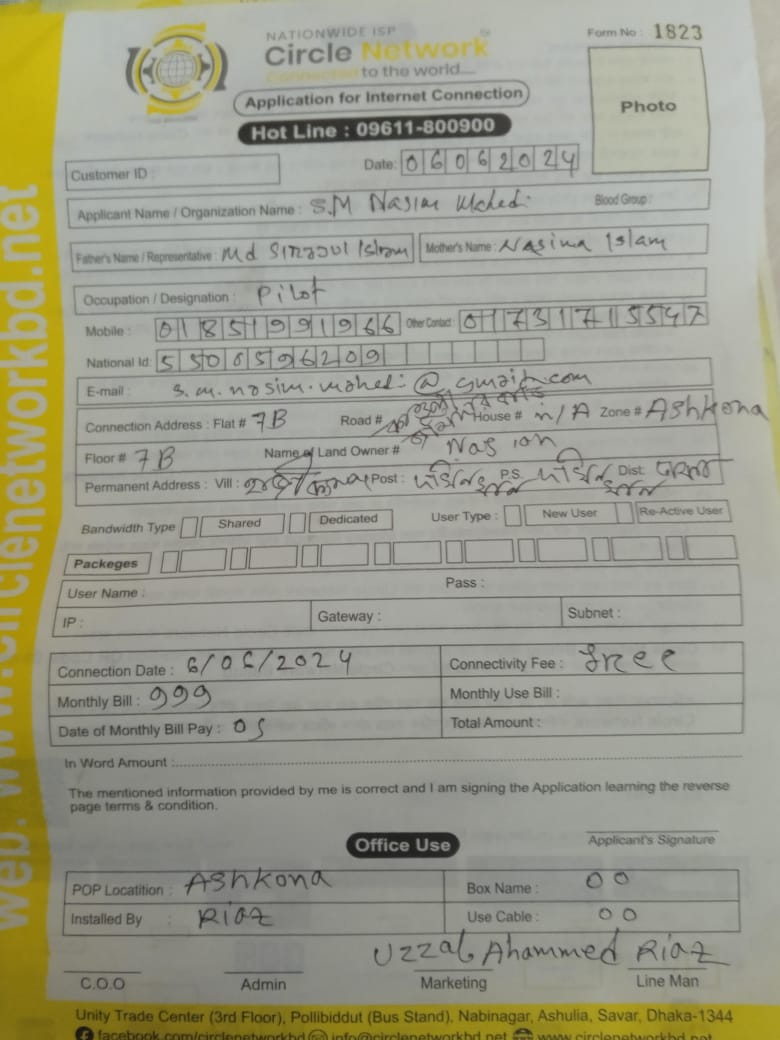 NATIONWIDE ISP
Circle Network
Connected to the world....
Form No : 1823
Application for Internet Connection
Photo
Hot Line : 09611-800900
Customer ID :
Date: 06062024
Applicant Name / Organization Name : S.M Nasim Mehedi Blood Group :
Father's Name / Representative : Md Sirajul Islam Mother's Name : Nasima Islam
Occupation / Designation : Pilot
Mobile : 01851991966 Other Contact : 01731715547
National Id: 5505596209
E-mail : s.m.nasim.mahedi@gmail.com
Connection Address : Flat # 7B Road # House # n/A Zone # Ashkona
Floor # 7B Name of Land Owner #
Permanent Address : Vill : Post : P.S Dist:
Bandwidth Type Shared Dedicated User Type : New User Re-Active User
Packeges
User Name : Pass :
IP : Gateway : Subnet :
Connection Date : 6/06/2024 Connectivity Fee : free
Monthly Bill : 999 Monthly Use Bill :
Date of Monthly Bill Pay : 05 Total Amount :
In Word Amount :
The mentioned information provided by me is correct and I am signing the Application learning the reverse
page terms & condition.
Applicant's Signature
Office Use
POP Locatition : Ashkona Box Name : 00
Installed By : Riaz Use Cable : 00
Uzzal Ahammed Riaz
C.O.O Admin Marketing Line Man
Unity Trade Center (3rd Floor), Pollibiddut (Bus Stand), Nabinagar, Ashulia, Savar, Dhaka-1344
facebook.com/circlenetworkbd info@circlenetworkbd.net www.circlenetworkbd.net
web: www.circlenetworkbd.net